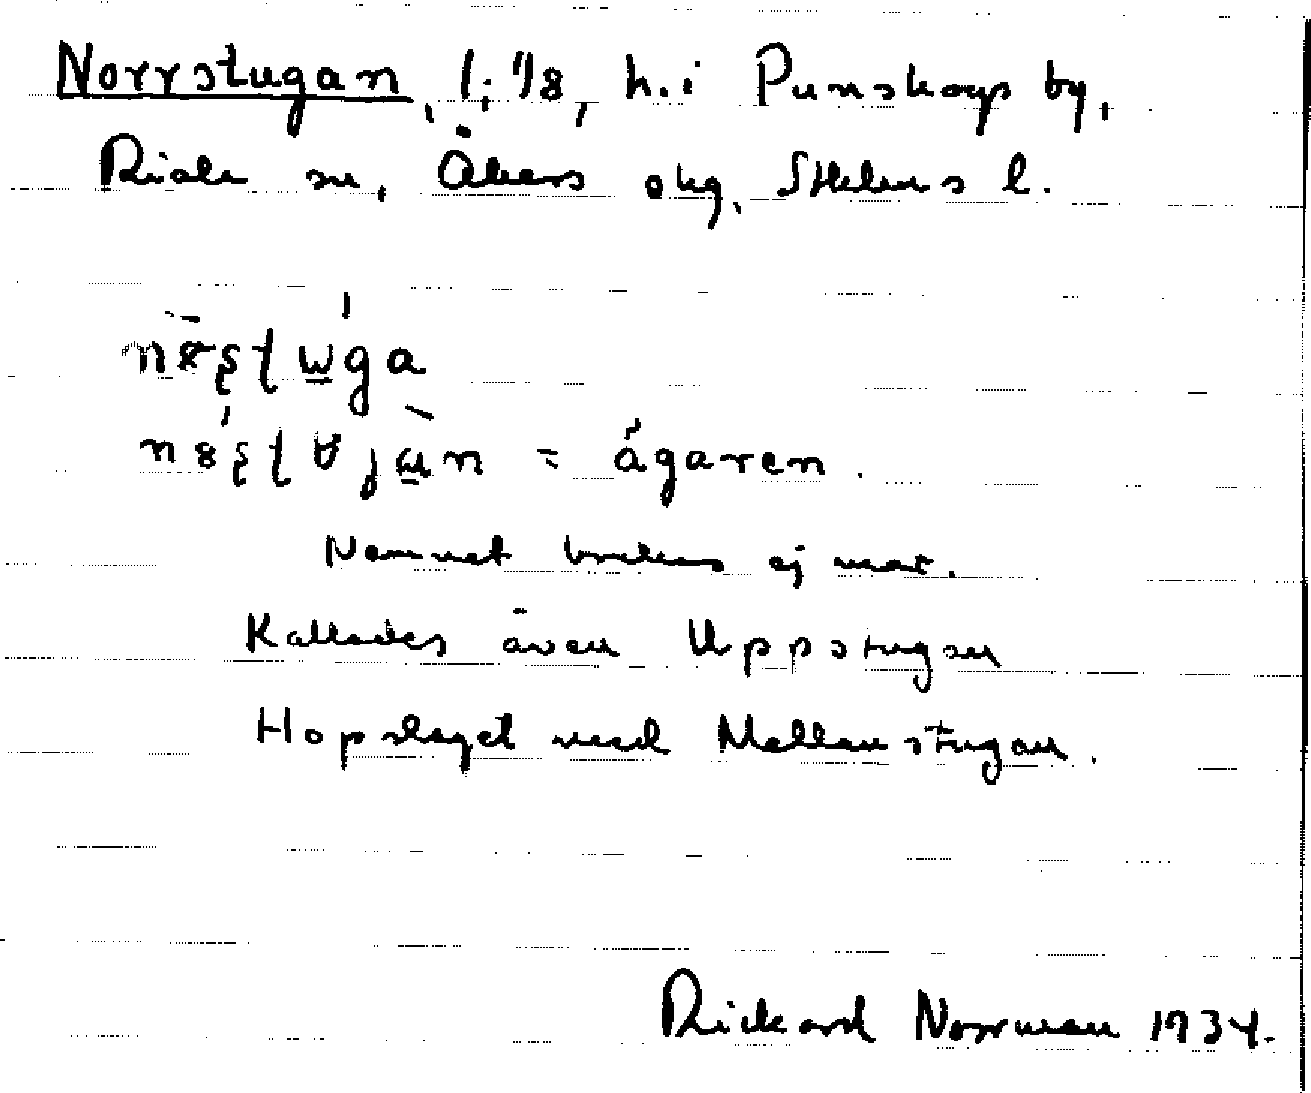 Norrstugan, 1; 1/8, h. i Punskogs by,
Riala sn, Åkers skg, Sthlms l.
= ägaren.
Namnet brukas ej mera.
Kallades även Uppstugan
Hopslaget med Mellanstugan.
Rickard Norrman 1934.